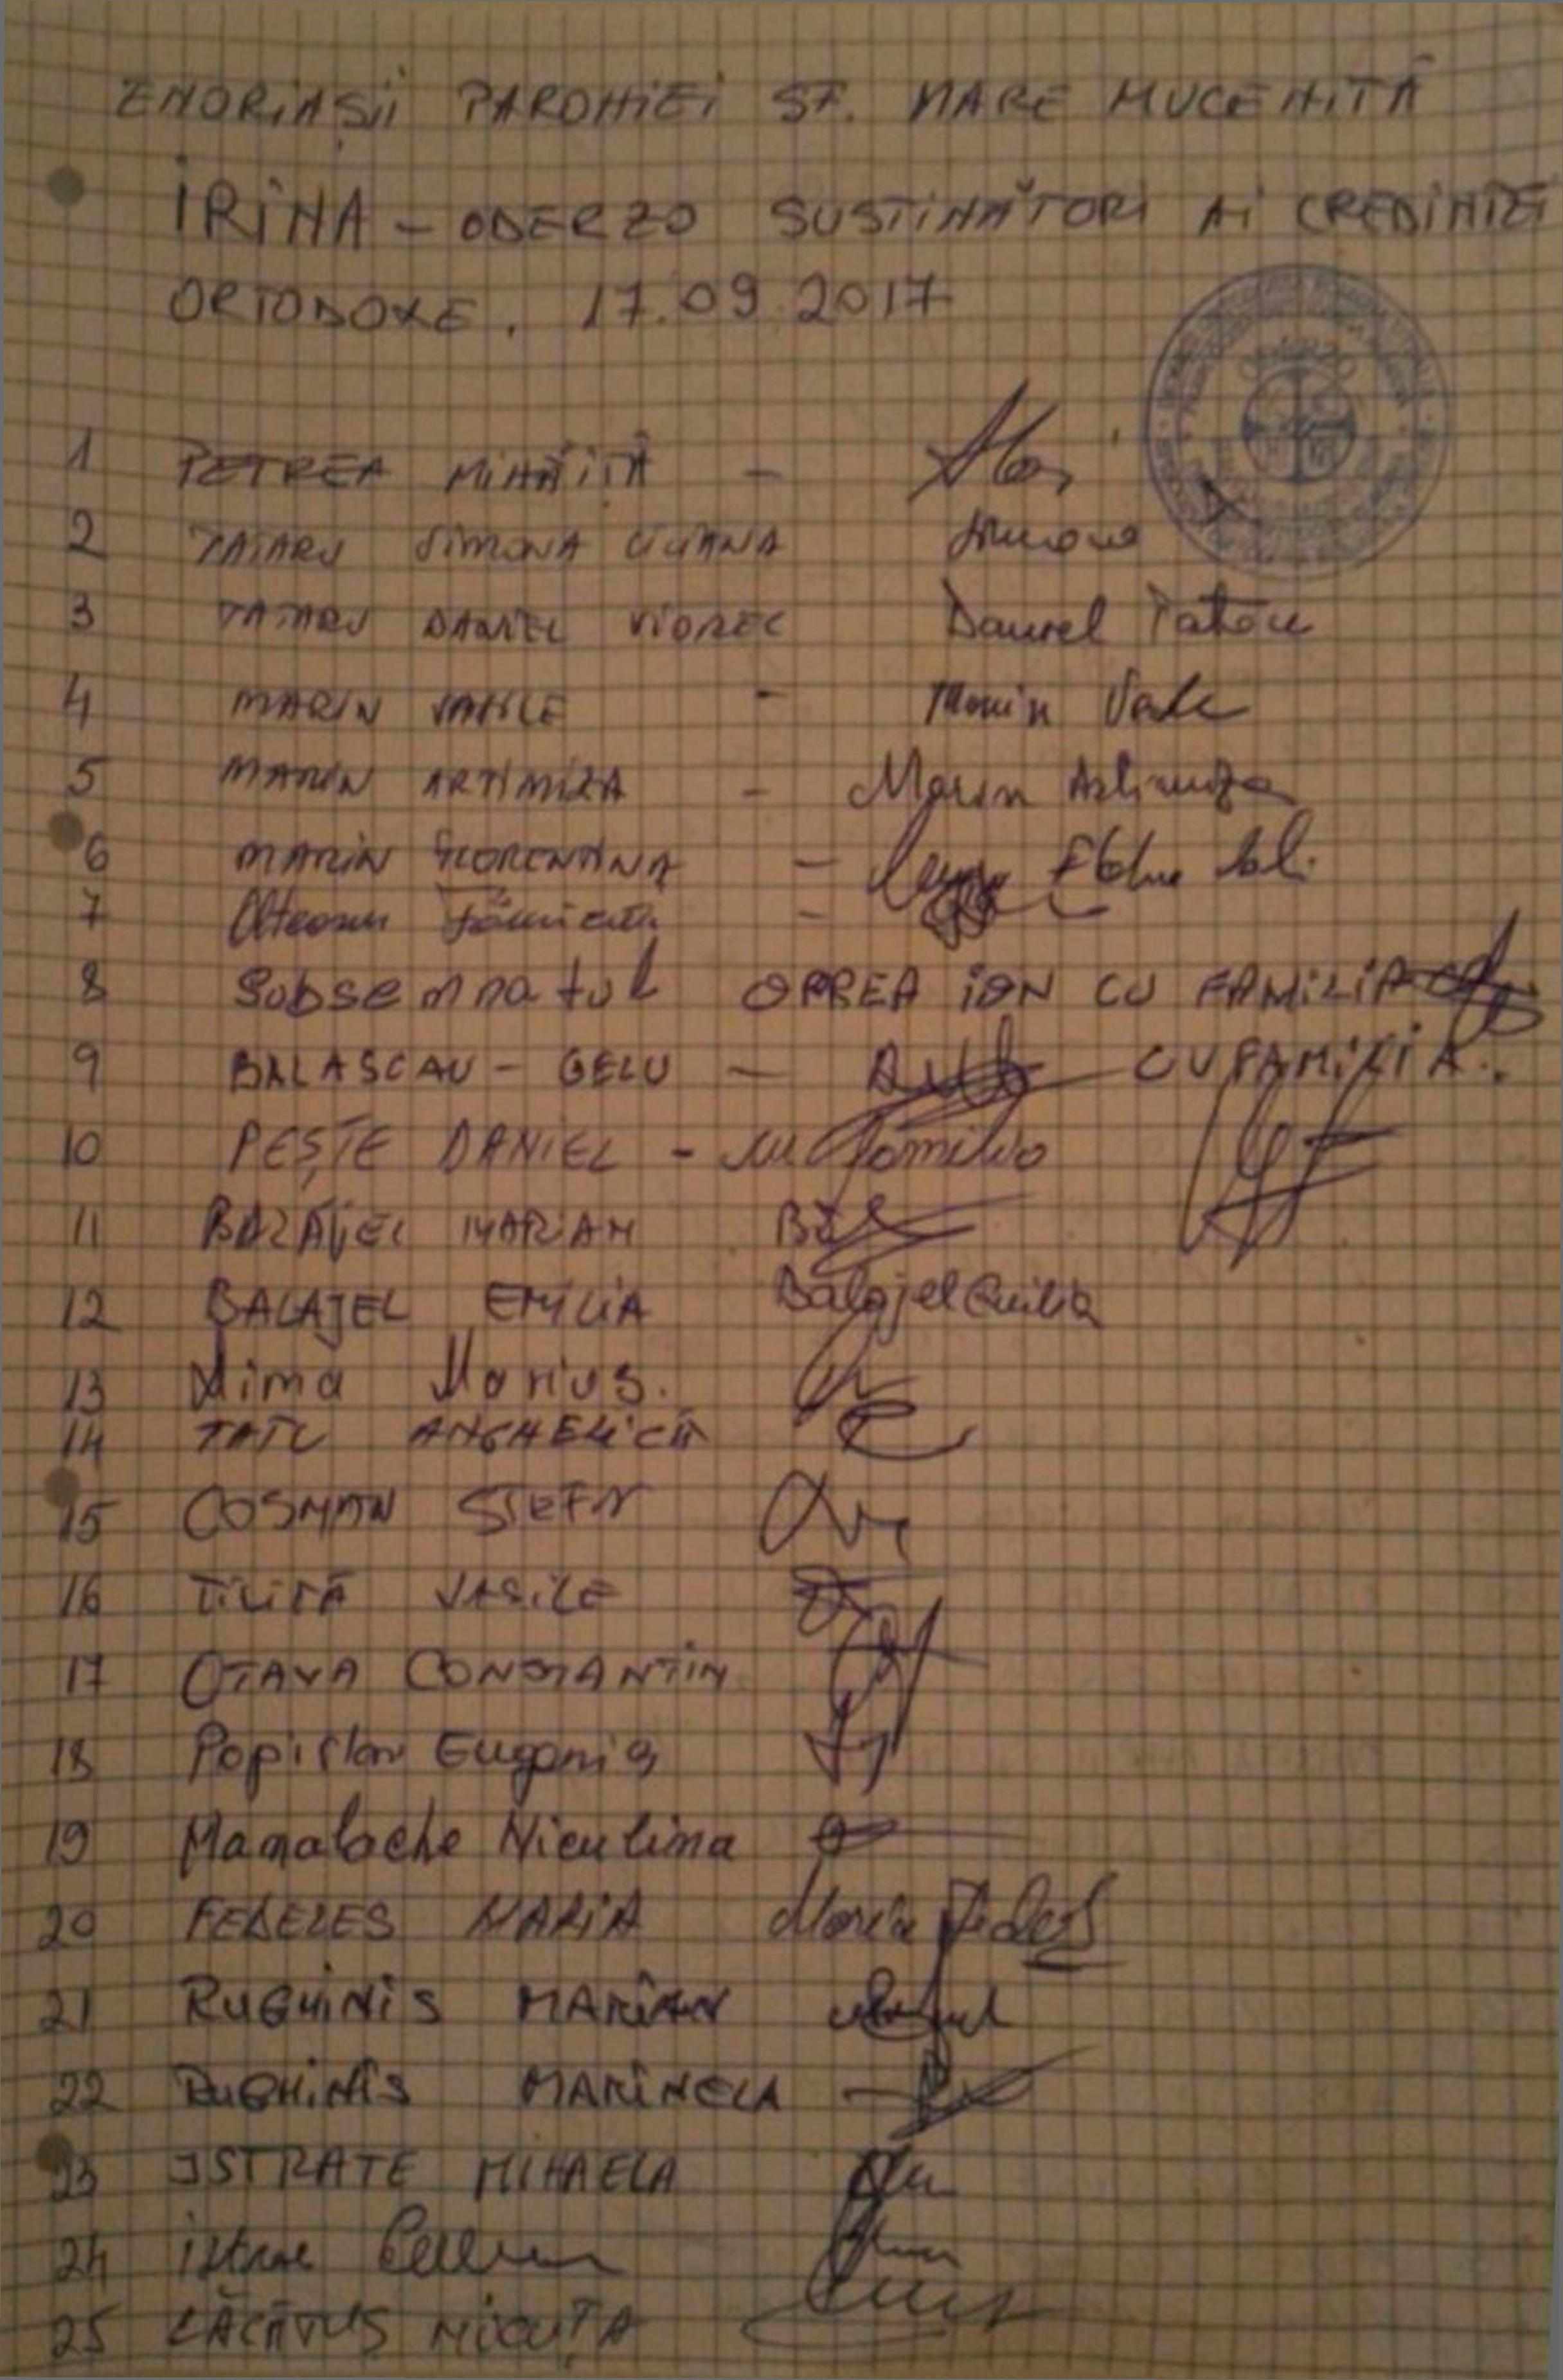 ENORIAȘII PAROHIEI SF. MARE MUCENITĂ
IRINA - ODERZO SUSTINĂTORI AI CREDINTEI
ORTODOXE. 17.09.2017
1 PETREA MIHĂIȚĂ -
2 TATARU SIMONA LILIANA Simona
3 TATARU DANIEL VIOREL Daniel Tataru
4 MARIN VASILE - Marin Vasile
5 MARIN ARTIMIZA - Marin Artimiza
6 MARIN FLORENTINA -
7 Olteanu -
8 Subsemnatul OPREA ION CU FAMILIA
9 BALASCAU - GELU - CU FAMILIA
10 PEȘTE DANIEL - cu familia
11 BALĂJEL MARIAN
12 BALAJEL EMILIA Balajel Emilia
13 Dima Marius.
14 TATU
15 COSMAN STEFN
16 VASILE
17 OTAVA CONSTANTIN
18 Popistan Eugenia
19 Manalache Niculina
20 FEDELES MARIA Maria
21 RUGHINIS MARIAN
22 RUGHINIS MARINELA -
23 ISTRATE MIHAELA
24
25 LĂCĂTUS NICUȚA